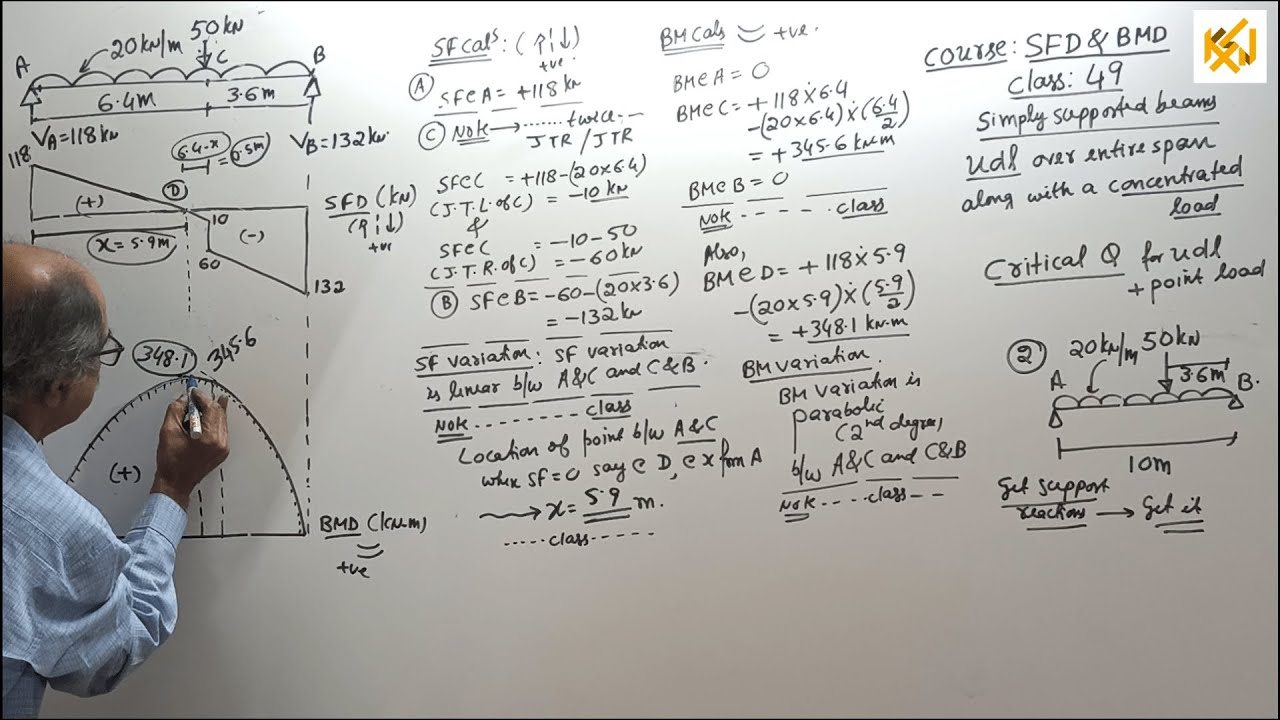 50 kN
20 kN/m
A
C
B
6.4m
3.6m
VA = 118 kN
VB = 132 kN
6.4-x = 0.5m
118
D
(+)
10
(-)
x = 5.9m
60
132
SFD (kN)
(↑¦↓)
+ve
348.1
345.6
(+)
BMD (kN.m)
+ve
SF cals: (↑¦↓)
+ve
A
SF@A = +118 kN
C Note → ....... twice...
JTR / JTR
SF@C = +118-(20×6.4)
(J.T.L. of C) = -10 kN
&
SF@C = -10-50
(J.T.R. of C) = -60 kN
B SF@B = -60-(20×3.6)
= -132 kN
SF variation: SF variation
is linear b/w A&C and C&B.
Note ........ class
Location of point b/w A&C
where SF=0 say @ D, @ x from A
x = 5.9 m.
..... class ......
BM cals +ve.
BM@A = 0
BM@C = +118×6.4
-(20×6.4)×(6.4/2)
= +345.6 kN.m
BM@B = 0
Note - - - - . class
Also,
BM@D = +118×5.9
-(20×5.9)×(5.9/2)
= +348.1 kN.m
BM variation.
BM variation is
parabolic
(2nd degree)
b/w A&C and C&B
Note .... class - -
Course: SFD & BMD
Class: 49
Simply supported beams
Udl over entire span
along with a concentrated
load
Critical Q for udl
+ point load
2
20 kN/m 50 kN
A
3.6m
B.
10m
Get support
reactions → Get it